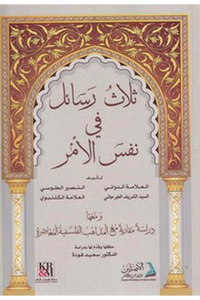 ثلاث رسائل
في
نفس الأمر
تأليف
العلامة الدواني
النصير الطوسي
السيد الشريف الجرجاني
العلامة الكلنبوي
ومعها
دراسة مقارنة مع المذاهب الفلسفية المعاصرة
حققها وقدم لها بدراسة
الدكتور سعيد فودة
الأصلين
KR&M